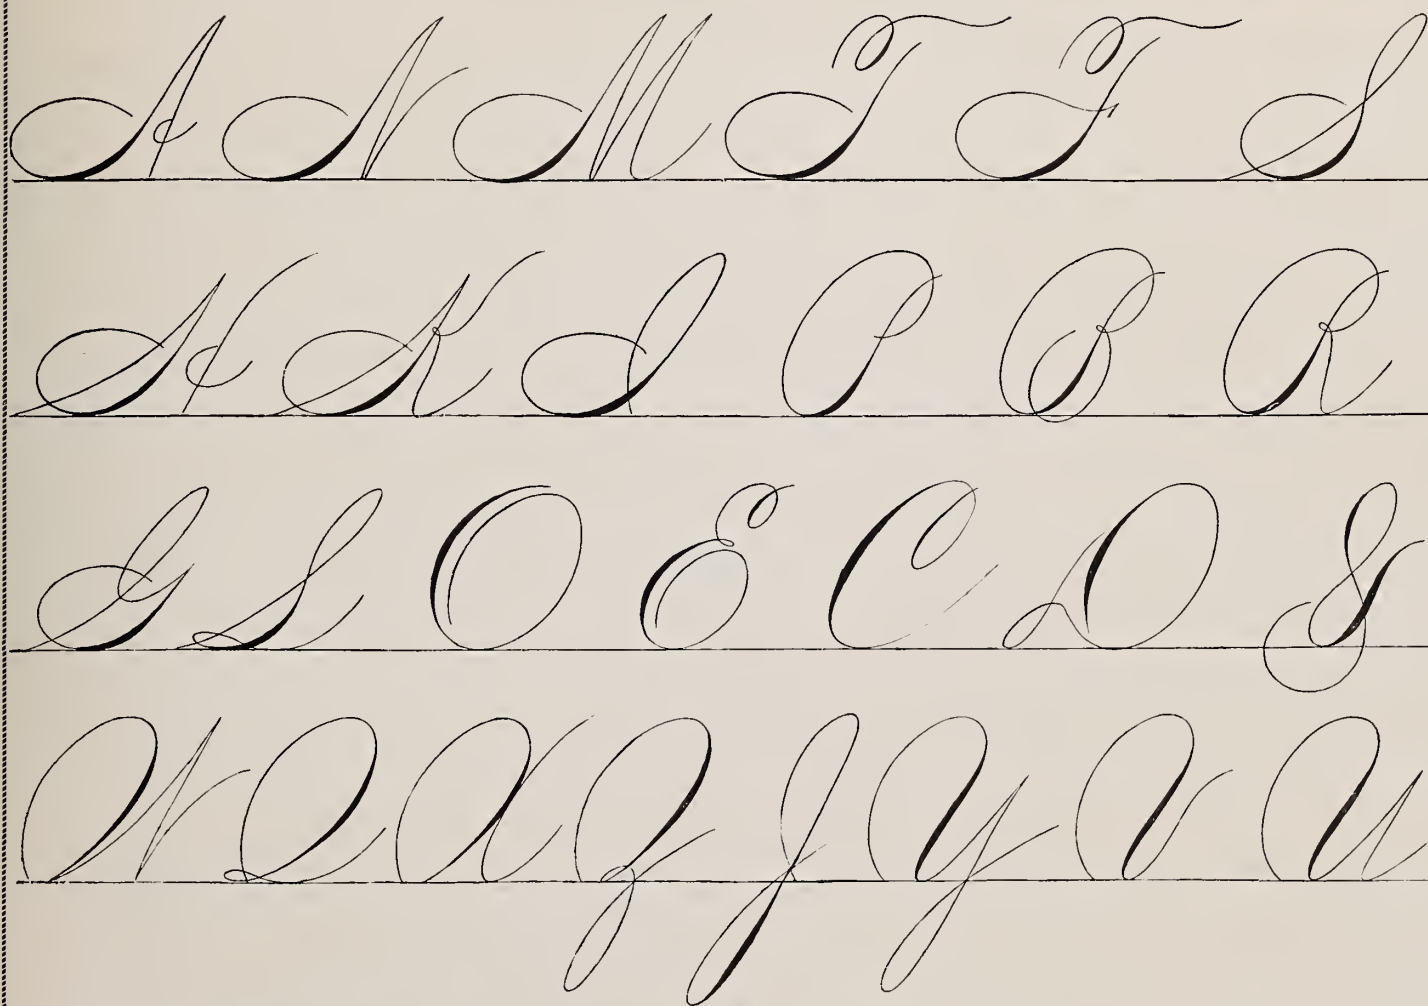 A N M T F S
H K I P B R
G L O E C D &
W Q X Z J Y V U